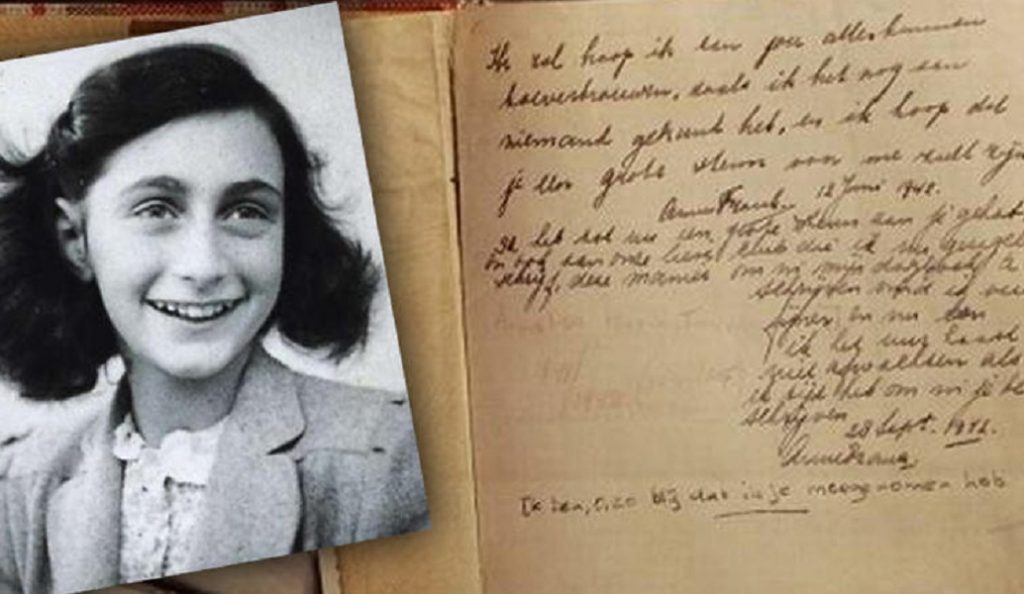 Ik zal hoop ik aan jou alles kunnen
toevertrouwen, zoals ik het nog aan
niemand gekund heb, en ik hoop dat
je een grote steun voor me zult zijn
Anne Frank. 12 Juni 1942.
Ik heb tot nu een grote steun aan je gehad
en ook aan onze lieve club die ik nu geregeld
schrijf, deze manier om in mijn dagboek te
schrijven vind ik veel
fijner en nu kan
ik het uur haast
niet afwachten als
ik tijd heb om in je te
schrijven
28 Sept. 1942.
Anne Frank
Ik ben, O, zo blij dat ik je meegenomen heb